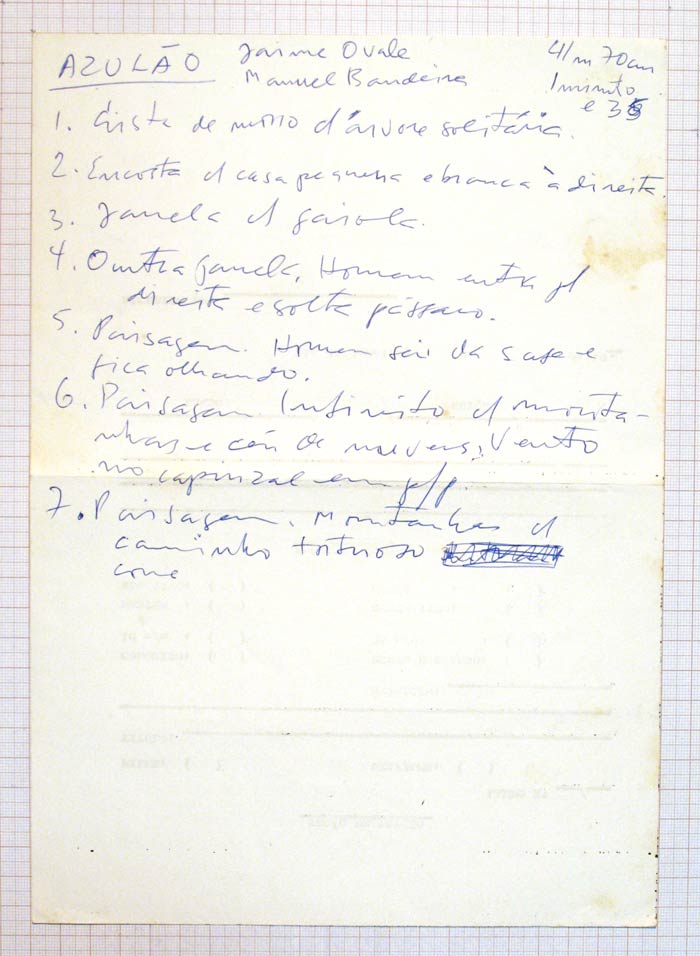 AZULÃO Jaime Ovale 41m 70cm
Manuel Bandeira 1 minuto
e 35
1. Crista de morro d'árvore solitária.
2. Encosta c/ casa pequena e branca à direita.
3. Janela c/ gaiola.
4. Outra janela. Homem entra p/
direita e solta pássaro.
5. Paisagem. Homem sai da casa e
fica olhando.
6. Paisagem. Infinito c/ monta-
nhas e céu de nuvens, Vento
no capinzal em p/p.
7. Paisagem. Montanhas c/
caminho tortuoso